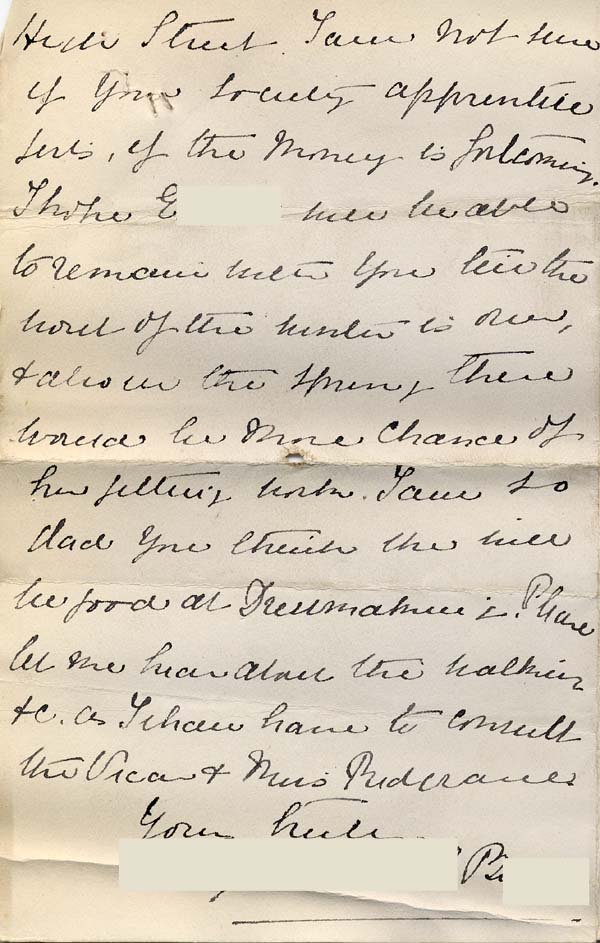 High Street. I am not sure
if your Society apprentice
girls, if the money is fortcoming.
I hope E will be able
to remain with you till the
worst of the winter is over,
& also in the spring there
would be more chance of
her getting work. I am so
glad you think she will
be good at Dressmaking. Please
let me hear about the walking
&c. as I shall have to consult
the Vicar & Miss Redgrave
Yours truly